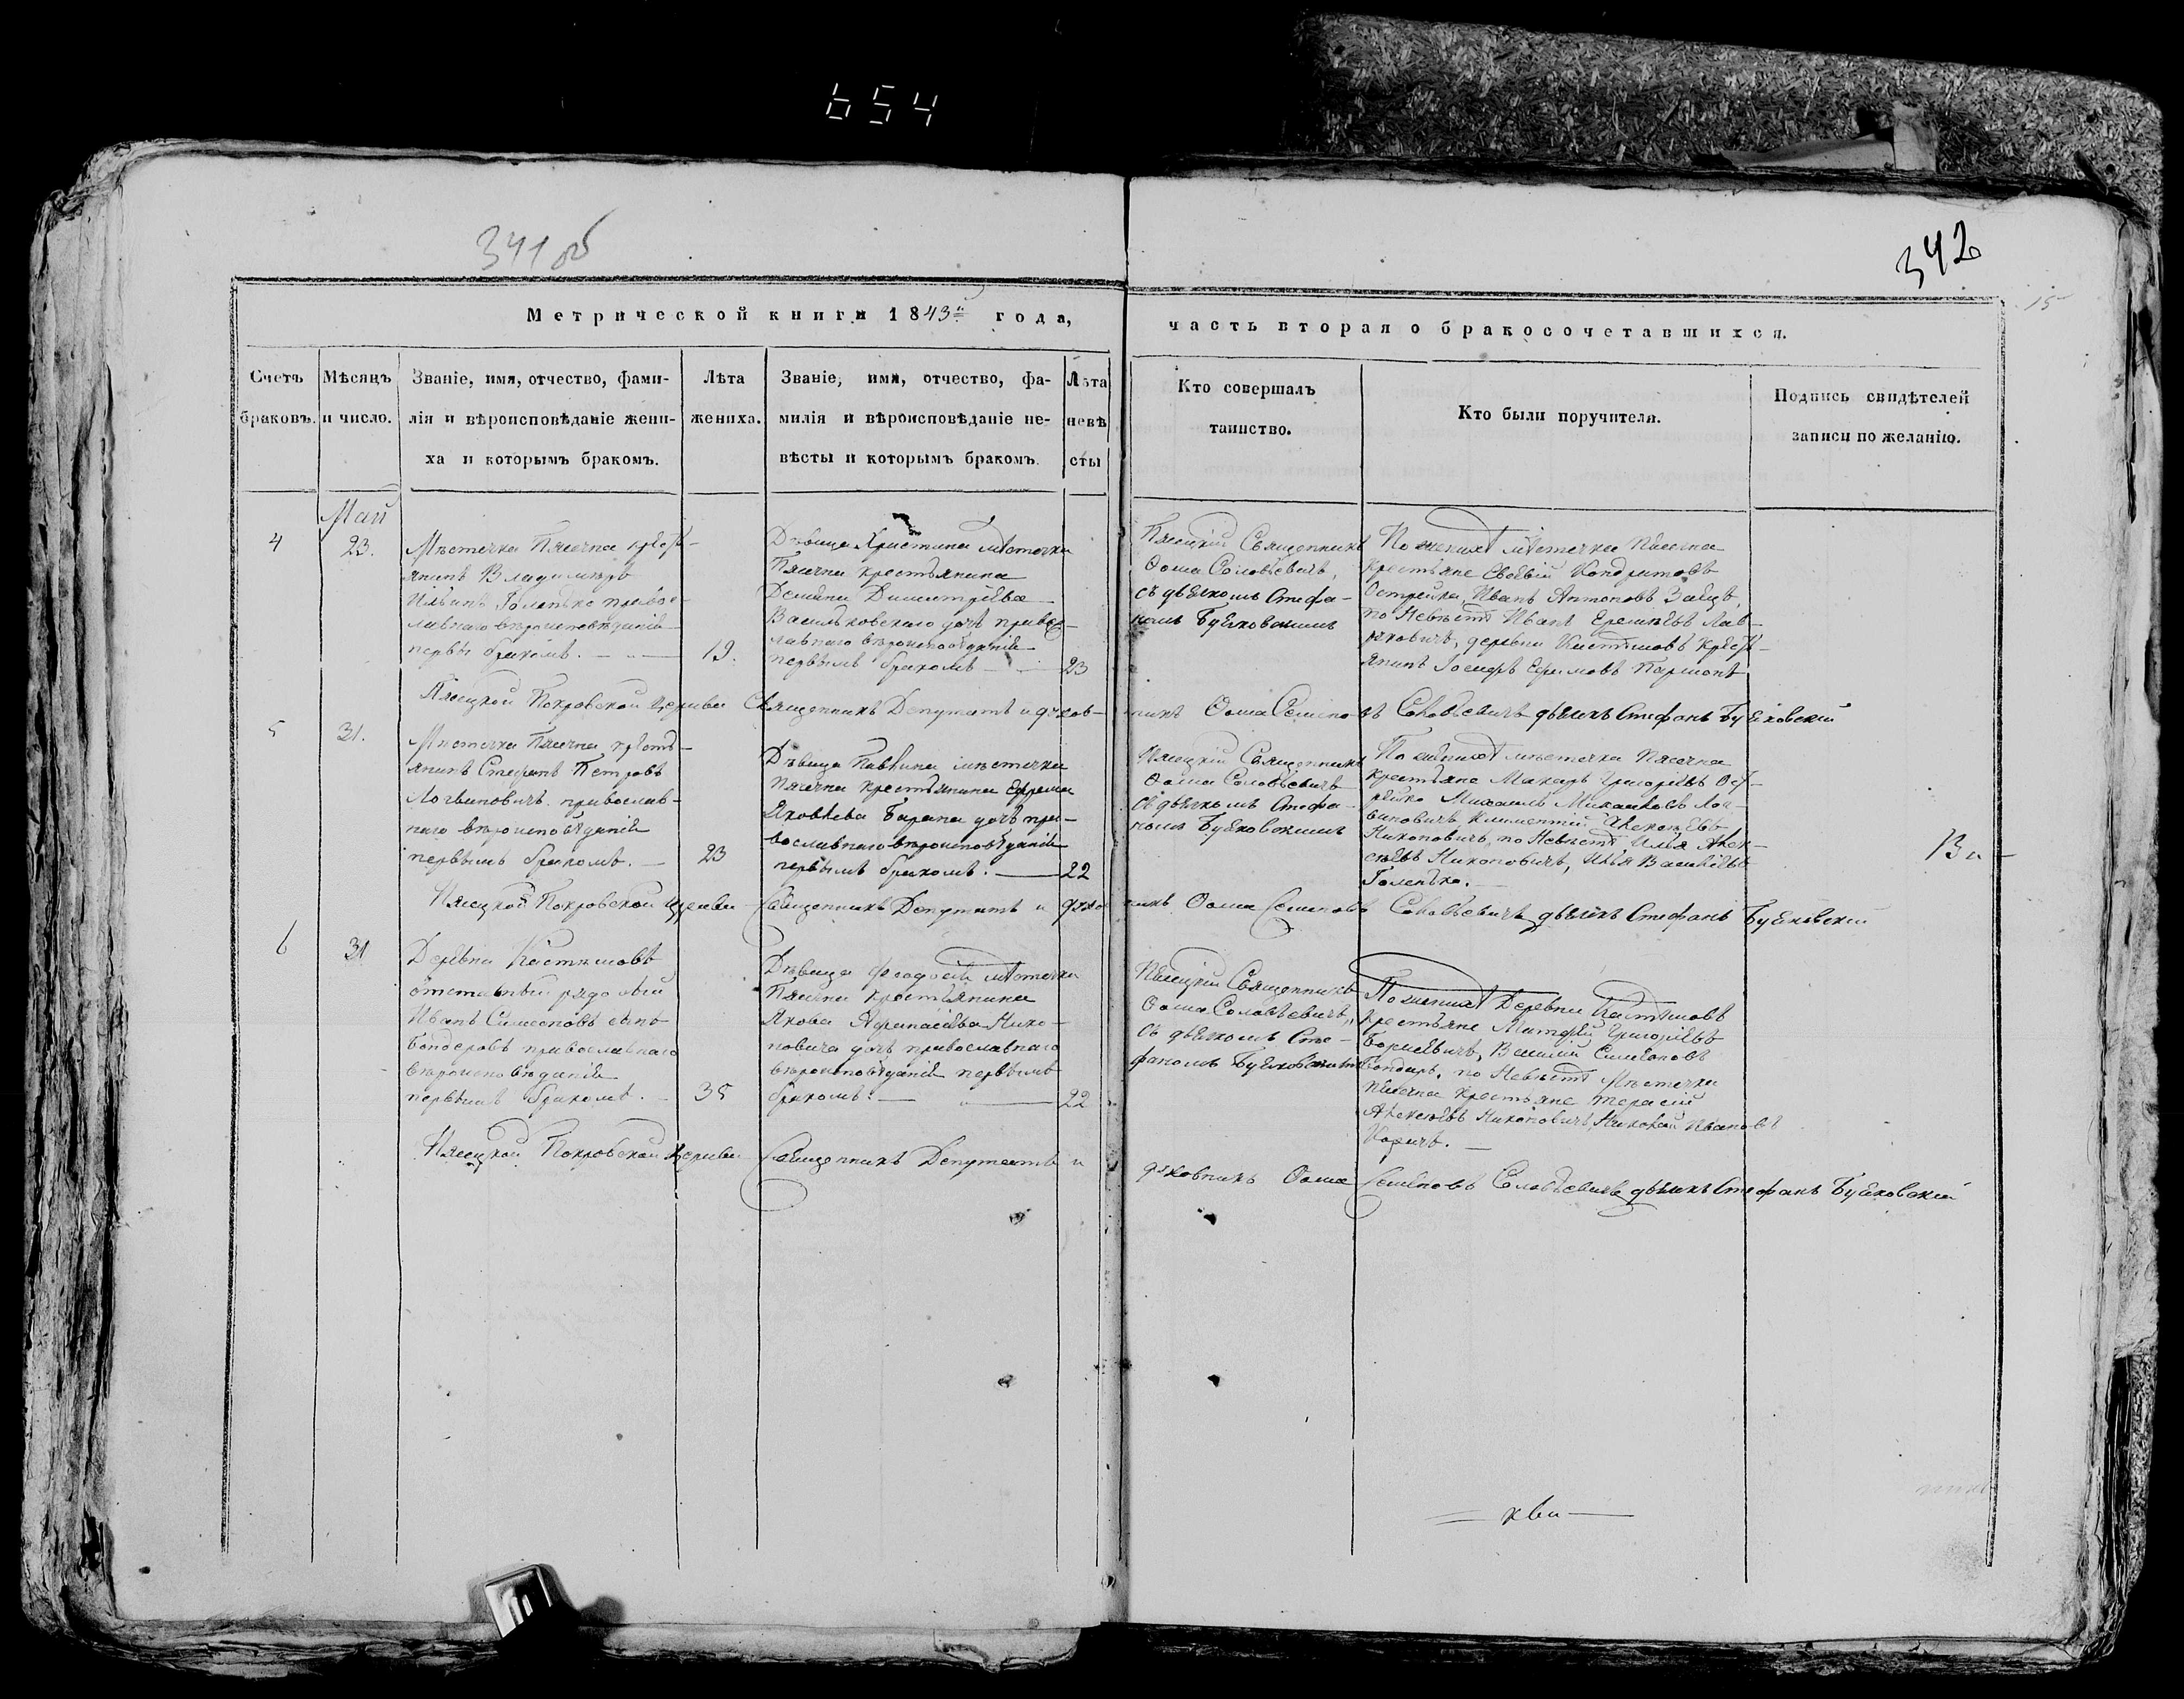 654
341 об
342
15
Метрической книги 1843й года,
часть вторая о бракосочетавшихся.
Счетъ браковъ.
Мѣсяцъ и число.
Званіе, имя, отчество, фами-
лія и вѣроисповѣданіе жени-
ха и которымъ бракомъ.
Лѣта
жениха.
Званіе, имя, отчество, фа-
милія и вѣроисповѣданіе не-
вѣсты и которымъ бракомъ.
Лѣта
невѣ
сты
Кто совершалъ
таинство.
Кто были поручители.
Подпись свидѣтелей
записи по желанію.
Май
4
23.
Мѣстечка Пясечна крест-
янинъ Владимиръ
Ильинъ Голенько право-
славнаго вѣроисповѣданія
первы бракомъ.
19.
Дѣвица Христина мѣстечка
Пясечна крестьянина
Демяна Димитріева
Васильковскаго дочь право-
славнаго вѣроисповѣданія
первымъ бракомъ
23
Пясецкій Священникъ
Ѳома Соловьевичъ,
съ дьячкомъ Стефа-
номъ Буйковскимъ
По женихѣ мѣстечка Пясечна
крестьяне Кондратовъ
Острейко, Иванъ Антоновъ Заяцъ,
по Невѣстѣ Иванъ Еремѣевъ Лав-
деревни Кистимовъ Крест-
янинъ Іосифъ Ефимовъ
Пясецкой Покровской Церкви Священникъ Депутатъ и духов-
никъ Ѳома Семеновъ Соловьевичъ дьячекъ Стефанъ Буйковскій
5
31.
Мѣстечка Пясечна крестъ-
янинъ Стефанъ Петровъ
Логвиновичъ православ-
наго вѣроисповѣданія
первымъ бракомъ.
23
Дѣвица Павлина мѣстечка
Пясечна крестьянина Ефрема
Яковлева Барана дочь пра-
вославнаго вѣроисповѣданія
первымъ бракомъ.
22
Пясецкій Священникъ
Ѳома Соловьевичъ
съ дьячкомъ Стефа-
номъ Буйковскимъ
По женихѣ мѣстечка Пясечна
крестьяне Макаръ Григоріевъ Ост-
рейко Михаилъ Михайловъ Лог-
виновичъ Климентій Алексѣевъ
Никоновичъ, по Невѣстѣ Илья Алек-
сѣевъ Никоновичъ, Илья Васильевъ
Голенько.
Ва-
Пясецкой Покровской Церкви Священникъ Депутатъ и духо
никъ Ѳома Семеновъ Соловьевичъ дьячекъ Стефанъ Буйковскій
6
31
Деревни Кистимовъ
отставный рядовый
Иванъ Симеоновъ сынъ
Бондеровъ православнаго
вѣроисповѣданія
первымъ бракомъ.
35
Дѣвица Феодосія мѣстечка
Пясечна крестьянина
Якова Афанасіева Нико-
новича дочь православнаго
вѣроисповѣданія первымъ
бракомъ.
22
Пясецкій Священникъ
Ѳома Соловьевичъ,
съ дьячкомъ Сте-
фаномъ Буйковскимъ
По женихѣ Деревни Кистимовъ
крестьяне Матфей Григоріевъ
Василій Симеоновъ
Бондарь, по Невѣстѣ Мѣстечка
Пясечна крестьяне Терасій
Алексѣевъ Никоновичъ, Николай Ивановъ
Пясецкой Покровской Церкви Священникъ Депутатъ и
духовникъ Ѳома Семеновъ Соловьевичъ дьячекъ Стефанъ Буйковскій